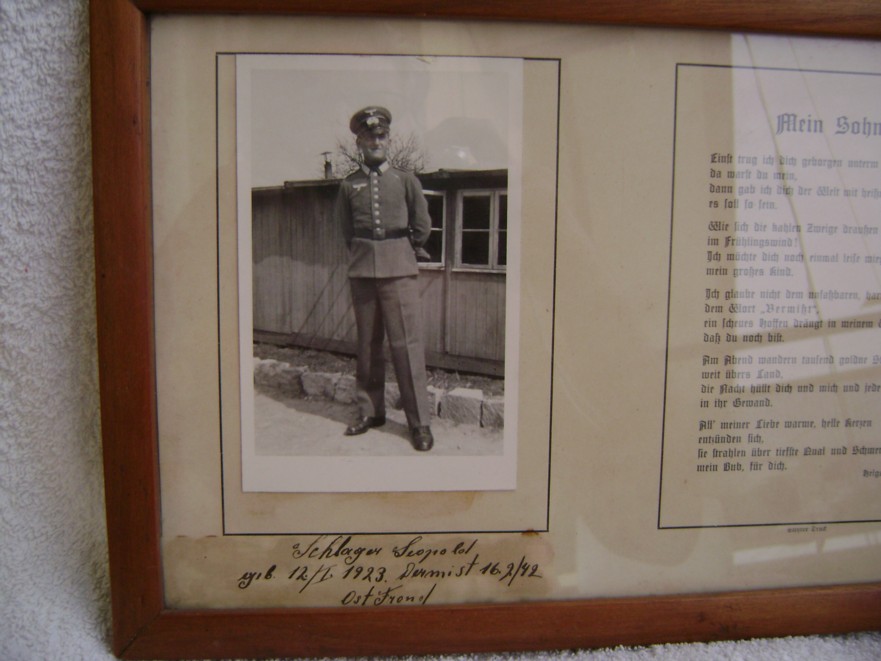 Mein Sohn
Einst trug ich dich geborgen unterm
da warst du mein,
dann gab ich dich der Welt mit
es soll so sein.
Wie sich die kahlen Zweige draußen
im Frühlingswind?
Ich möchte dich noch einmal leise
mein großes Kind.
Ich glaube nicht dem unfaßbaren,
dem Wort „Vermißt“,
ein scheues Hoffen drängt in meinem
daß du noch bist.
Am Abend wandern tausend goldne
weit übers Land,
die Nacht hüllt dich und mich und
in ihr Gewand.
All' meiner Liebe warme, helle Kerzen
entzünden sich,
sie strahlen über tiefste Qual und
mein Bub, für dich.
Schlager Leopold
geb. 12/I 1923. Vermist 16.2/42
Ost Frond